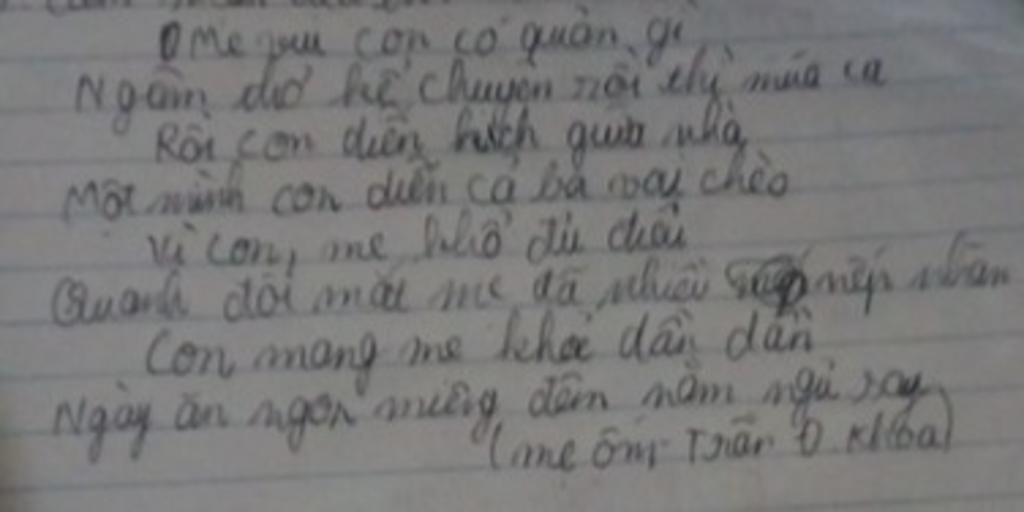 Mẹ vui con có quản gì
Ngâm thơ kể chuyện rồi thì múa ca
Rồi con diễn kịch giữa nhà
Một mình con diễn cả ba vai chèo
Vì con, mẹ khổ đủ điều
Quanh đôi mắt mẹ đã nhiều nếp nhăn
Con mong mẹ khỏe dần dần
Ngày ăn ngon miệng đêm nằm ngủ say
(mẹ ốm Trần Đ Khoa)